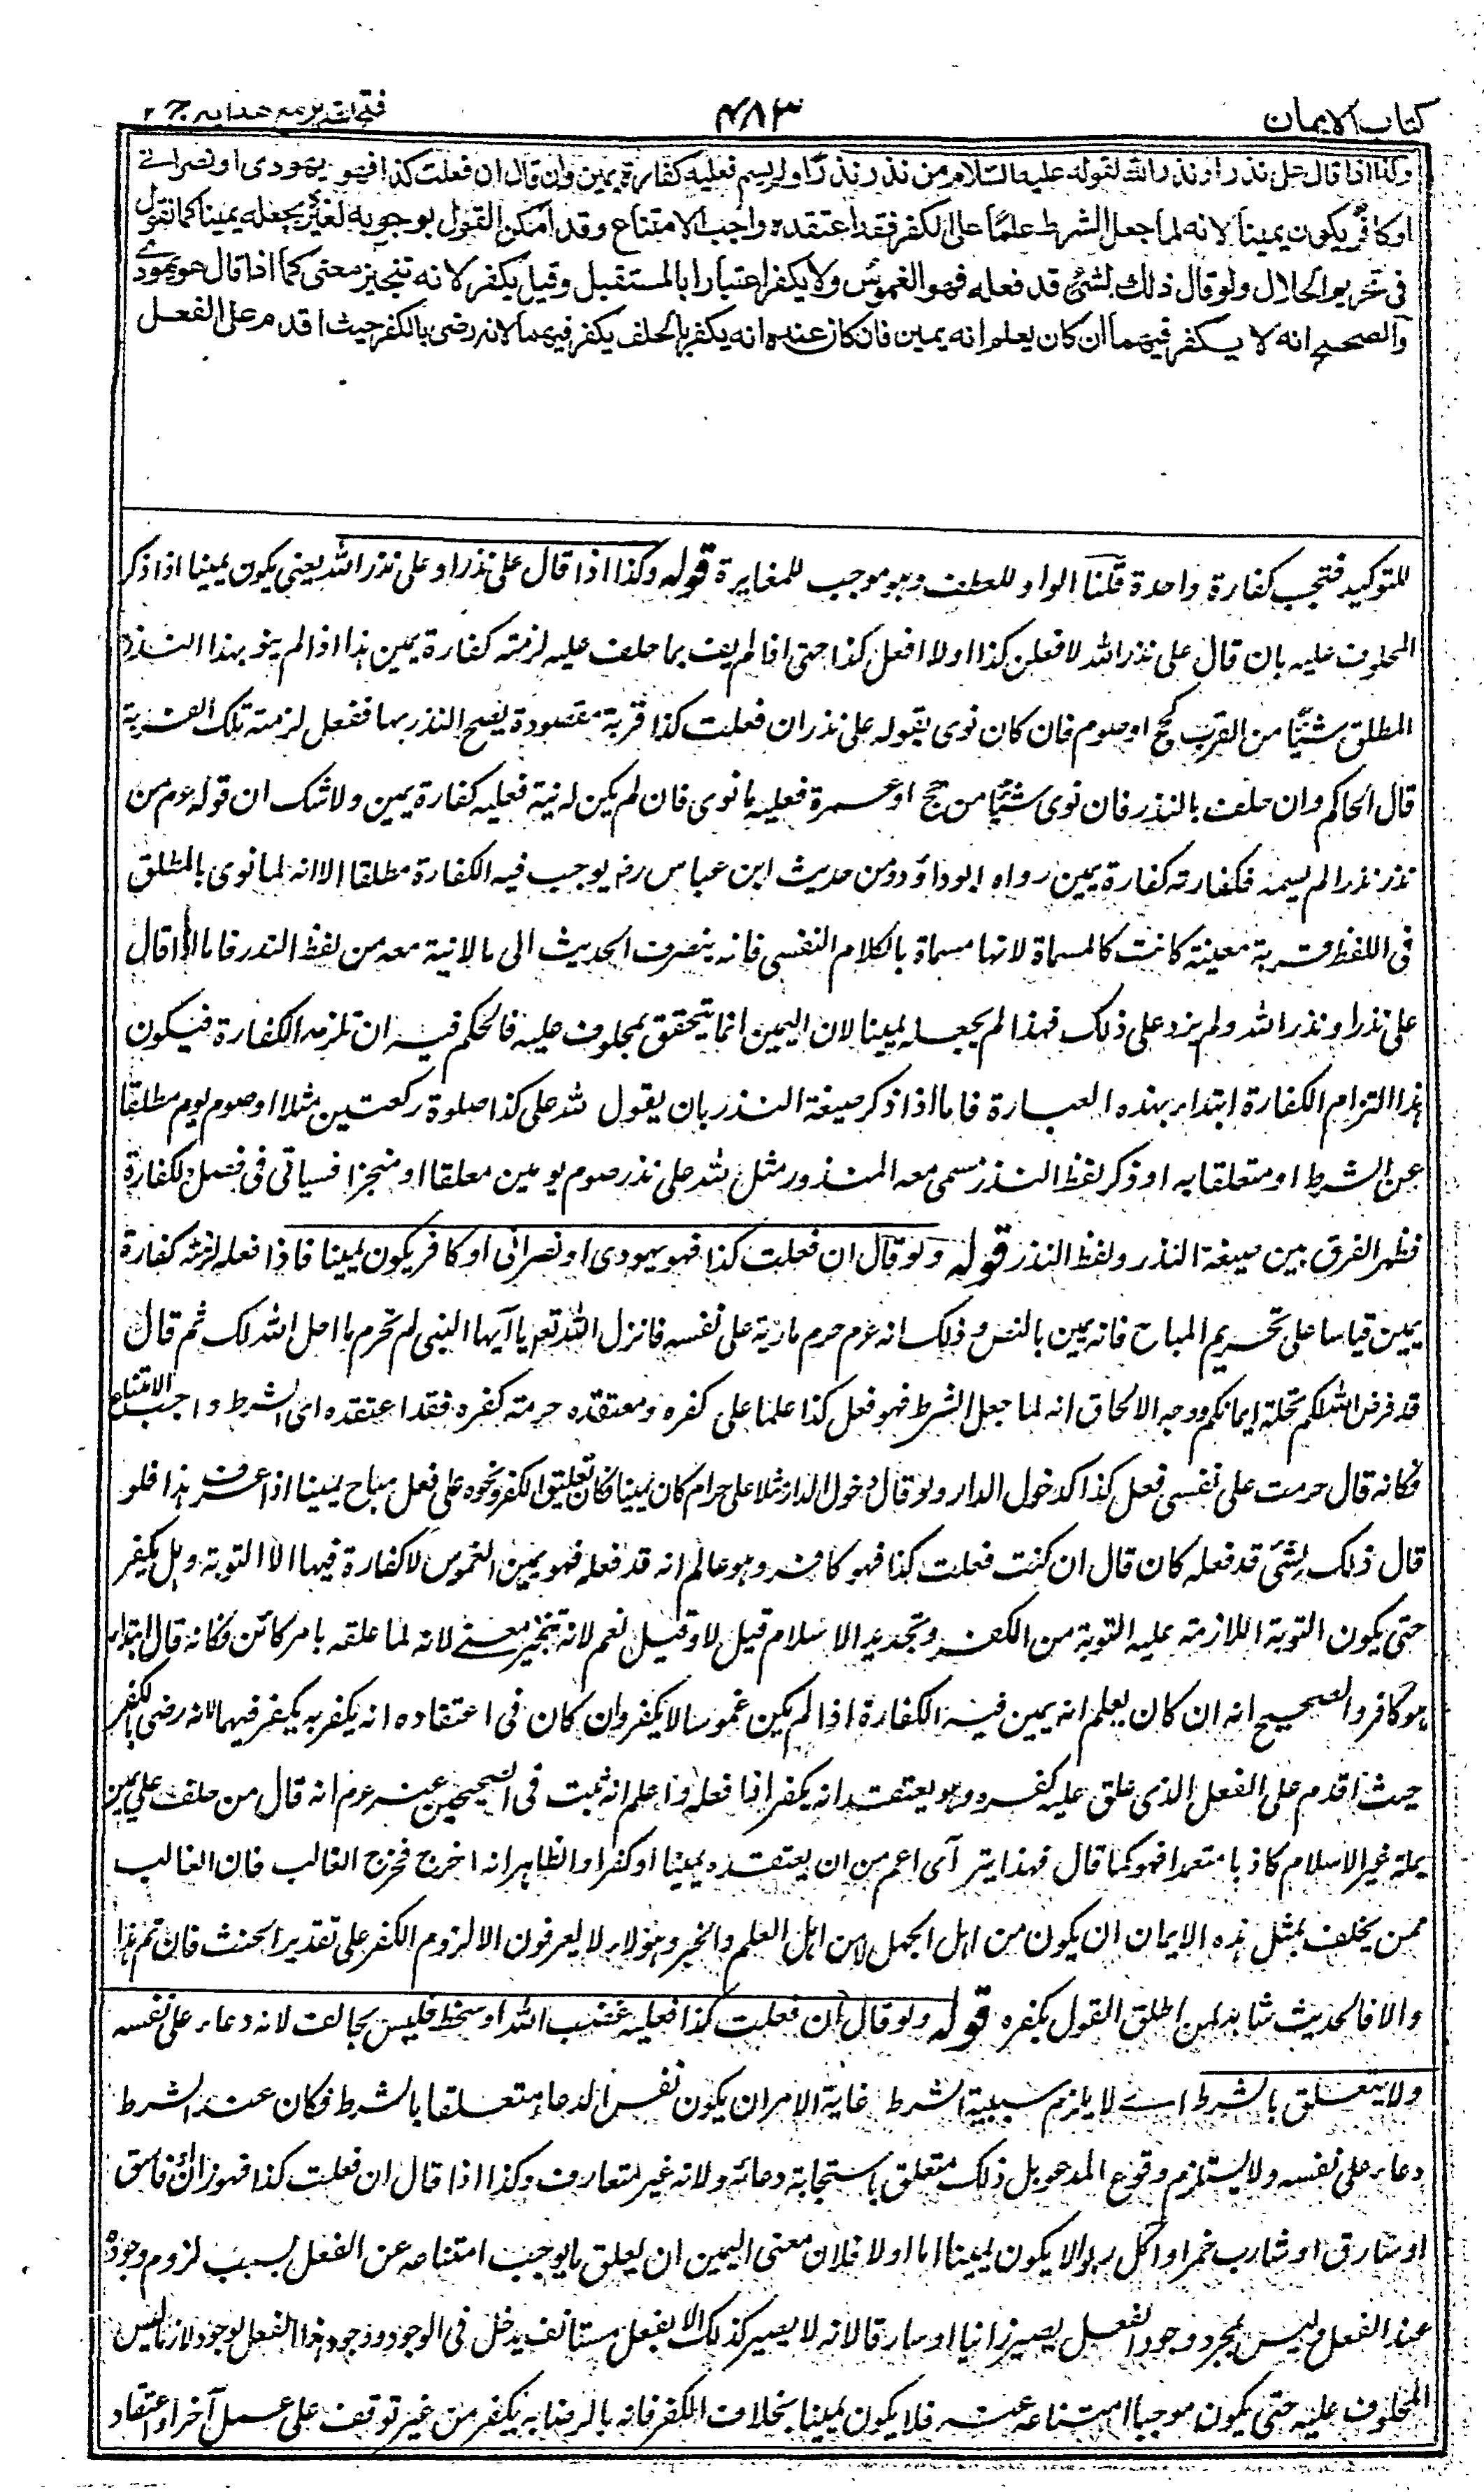 كتاب الايمان
٤٨٣
فتح القدير مع هدايه ج ٢
وكذا اذا قال على نذر او نذر الله لقوله عليه السلام من نذر نذرًا ولم يسم فعليه كفارة يمين وان قال ان فعلت كذا فهو يهودى او نصرانى
او كافر يكون يمينا لانه لما جعل الشرط علمًا على الكفر فقد اعتقده واجب الامتناع وقد امكن القول بوجوبه لغيره بجعله يمينا كما نقول
فى تحريم الحلال ولو قال ذلك لشئ قد فعله فهو الغموس ولا يكفر اعتبارا بالمستقبل وقيل يكفر لانه تنجيز معنى كما اذا قال هو يهودى
والصحيح انه لا يكفر فيهما ان كان يعلم انه يمين فان كان عنده انه يكفر بالحلف يكفر فيهما لانه رضى بالكفر حيث اقدم على الفعل
للتوكيد فتجب كفارة واحدة قلنا الواو للعطف وهو موجب للمغايرة قوله وكذا اذا قال على نذر او على نذر الله يعنى يكون يمينا اذا ذكر
المحلوف عليه بان قال على نذر الله لافعلن كذا او لا افعل كذا حتى اذا لم يف بما حلف عليه لزمته كفارة يمين هذا اذا لم ينو بهذا النذر
المطلق شيئًا من القرب كحج او صوم فان كان نوى بقوله على نذر ان فعلت كذا قربة مقصودة يصح النذر بها ففعل لزمته تلك القربة
قال الحاكم وان حلف بالنذر فان نوى شيئًا من حج او عمرة فعليه ما نوى فان لم يكن له نية فعليه كفارة يمين ولا شك ان قوله عم من
نذر نذرا لم يسمه فكفارته كفارة يمين رواه ابو داؤد من حديث ابن عباس رض يوجب فيه الكفارة مطلقا الا انه لما نوى بالمطلق
فى اللفظ قربة معينة كانت كالمسماة لانها مسماة بالكلام النفسى فانه ينصرف الحديث الى ما لا نية معه من لفظ النذر فاما اذا قال
على نذر او نذر الله ولم يزد على ذلك فهذا لم يجعله يمينا لان اليمين انما يتحقق بمحلوف عليه فالحكم فيه ان تلزمه الكفارة فيكون
هذا التزام الكفارة ابتداء بهذه العبارة فاما اذا ذكر صيغة النذر بان يقول لله على كذا صلوة ركعتين مثلا او صوم يوم مطلقا
عن الشرط او متعلقا به او ذكر لفظ النذر مسمى معه المنذور مثل لله على نذر صوم يومين معلقا او منجزا فسياتى فى فصل الكفارة
فظهر الفرق بين صيغة النذر ولفظ النذر قوله ولو قال ان فعلت كذا فهو يهودى او نصرانى او كافر يكون يمينا فاذا فعله لزمته كفارة
يمين قياسا على تحريم المباح فانه يمين بالنص وذلك انه عم حرم مارية على نفسه فانزل الله تعم يا ايها النبى لم تحرم ما احل الله لك ثم قال
قد فرض الله لكم تحلة ايمانكم ووجه الالحاق انه لما جعل الشرط فهو فعل كذا علما على كفره ومعتقده حرمة كفره فقد اعتقده اى الشرط واجب الامتناع
فكانه قال حرمت على نفسى فعل كذا كدخول الدار ولو قال دخول الدار مثلا على حرام كان يمينا فكان تعليق الكفر ونحوه على فعل مباح يمينا اذا عرف هذا فلو
قال ذلك لشئ قد فعله كان قال ان كنت فعلت كذا فهو كافر وهو عالم انه قد فعله فهو يمين الغموس لا كفارة فيها الا التوبة وهل يكفر
حتى يكون التوبة اللازمة عليه التوبة من الكفر وتجديد الاسلام قيل لا وقيل نعم لانه تنجيز معنى لانه لما علقه بامر كائن فكانه قال ابتداء
هو كافر والصحيح انه ان كان يعلم انه يمين فيه الكفارة اذا لم يكن غموسا لا يكفر وان كان فى اعتقاده انه يكفر به يكفر فيهما لانه رضى بالكفر
حيث اقدم على الفعل الذى علق عليه كفره وهو يعتقد انه يكفر اذا فعله واعلم انه ثبت فى الصحيحين عنه عم انه قال من حلف على يمين
بملة غير الاسلام كاذبا متعمدا فهو كما قال فهذا يتراآى اعم من ان يعتقده يمينا او كفرا والظاهر انه اخرج مخرج الغالب فان الغالب
ممن يحلف بمثل هذه الايمان ان يكون من اهل الجهل لا من اهل العلم والخير وهؤلاء لا يعرفون الا لزوم الكفر على تقدير الحنث فان تم هذا
والا فالحديث شاهد لمن اطلق القول بكفره قوله ولو قال ان فعلت كذا فعليه غضب الله او سخطه فليس بحالف لانه دعاء على نفسه
ولا يتعلق بالشرط اى لا يلزم سببية الشرط غاية الامر ان يكون نفس الدعاء متعلقا بالشرط فكان عند الشرط
دعاء على نفسه ولا يستلزم وقوع المدعو بل ذلك متعلق باستجابة دعائه ولانه غير متعارف وكذا اذا قال ان فعلت كذا فهو زان او فاسق
او سارق او شارب خمر او آكل ربوا لا يكون يمينا اما اولا فلان معنى اليمين ان يعلق ما يوجب امتناعه عن الفعل بسبب لزوم وجوده
عند الفعل وليس بمجرد وجود الفعل يصير زانيا او سارقا لانه لا يصير كذلك الا بفعل مستانف يدخل فى الوجود ووجود هذا الفعل لوجود لازما ليس
المحلوف عليه حتى يكون موجبا امتناعه عنه فلا يكون يمينا بخلاف الكفر فانه بالرضا به يكفر من غير توقف على عمل آخر او اعتقاد